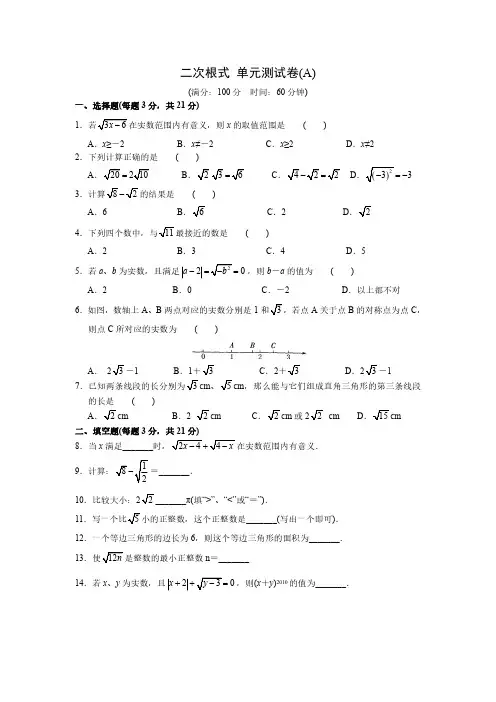 二次根式 单元测试卷(A)
(满分：100分 时间：60分钟)
一、选择题(每题3分，共21分)
1．若√(3x－6)在实数范围内有意义，则x的取值范围是 ( )
A．x≥－2 B．x≠－2 C．x≥2 D．x≠2
2．下列计算正确的是 ( )
A．√20＝2√10 B．√2 √3＝√6 C．√4－√2＝√2 D．√(－3)²＝－3
3．计算√8－√2的结果是 ( )
A．6 B．√6 C．2 D．√2
4．下列四个数中，与√11最接近的数是 ( )
A．2 B．3 C．4 D．5
5．若a、b为实数，且满足|a－2|＝√(－b²)＝0，则b－a的值为 ( )
A．2 B．0 C．－2 D．以上都不对
6．如图，数轴上A、B两点对应的实数分别是1和√3，若点A关于点B的对称点为点C，
则点C所对应的实数为 ( )
A B C
0 1 2 3
A． 2√3－1 B．1＋√3 C．2＋√3 D．2√3－1
7．已知两条线段的长分别为√3 cm、√5 cm，那么能与它们组成直角三角形的第三条线段
的长是 ( )
A．√2 cm B．2 √2 cm C．√2 cm或2√2 cm D．√15 cm
二、填空题(每题3分，共21分)
8．当x满足_______时，√(2x－4)＋√(4－x)在实数范围内有意义．
9．计算：√8－√(1/2)＝_______．
10．比较大小：2√2_______π(填“>”、“<”或“＝”)．
11．写一个比√5小的正整数，这个正整数是_______(写出一个即可)．
12．一个等边三角形的边长为6，则这个等边三角形的面积为_______．
13．使√12n是整数的最小正整数n＝_______
14．若x、y为实数，且|x＋2|＋√(y－3)＝0，则(x＋y)²⁰¹⁰的值为_______．